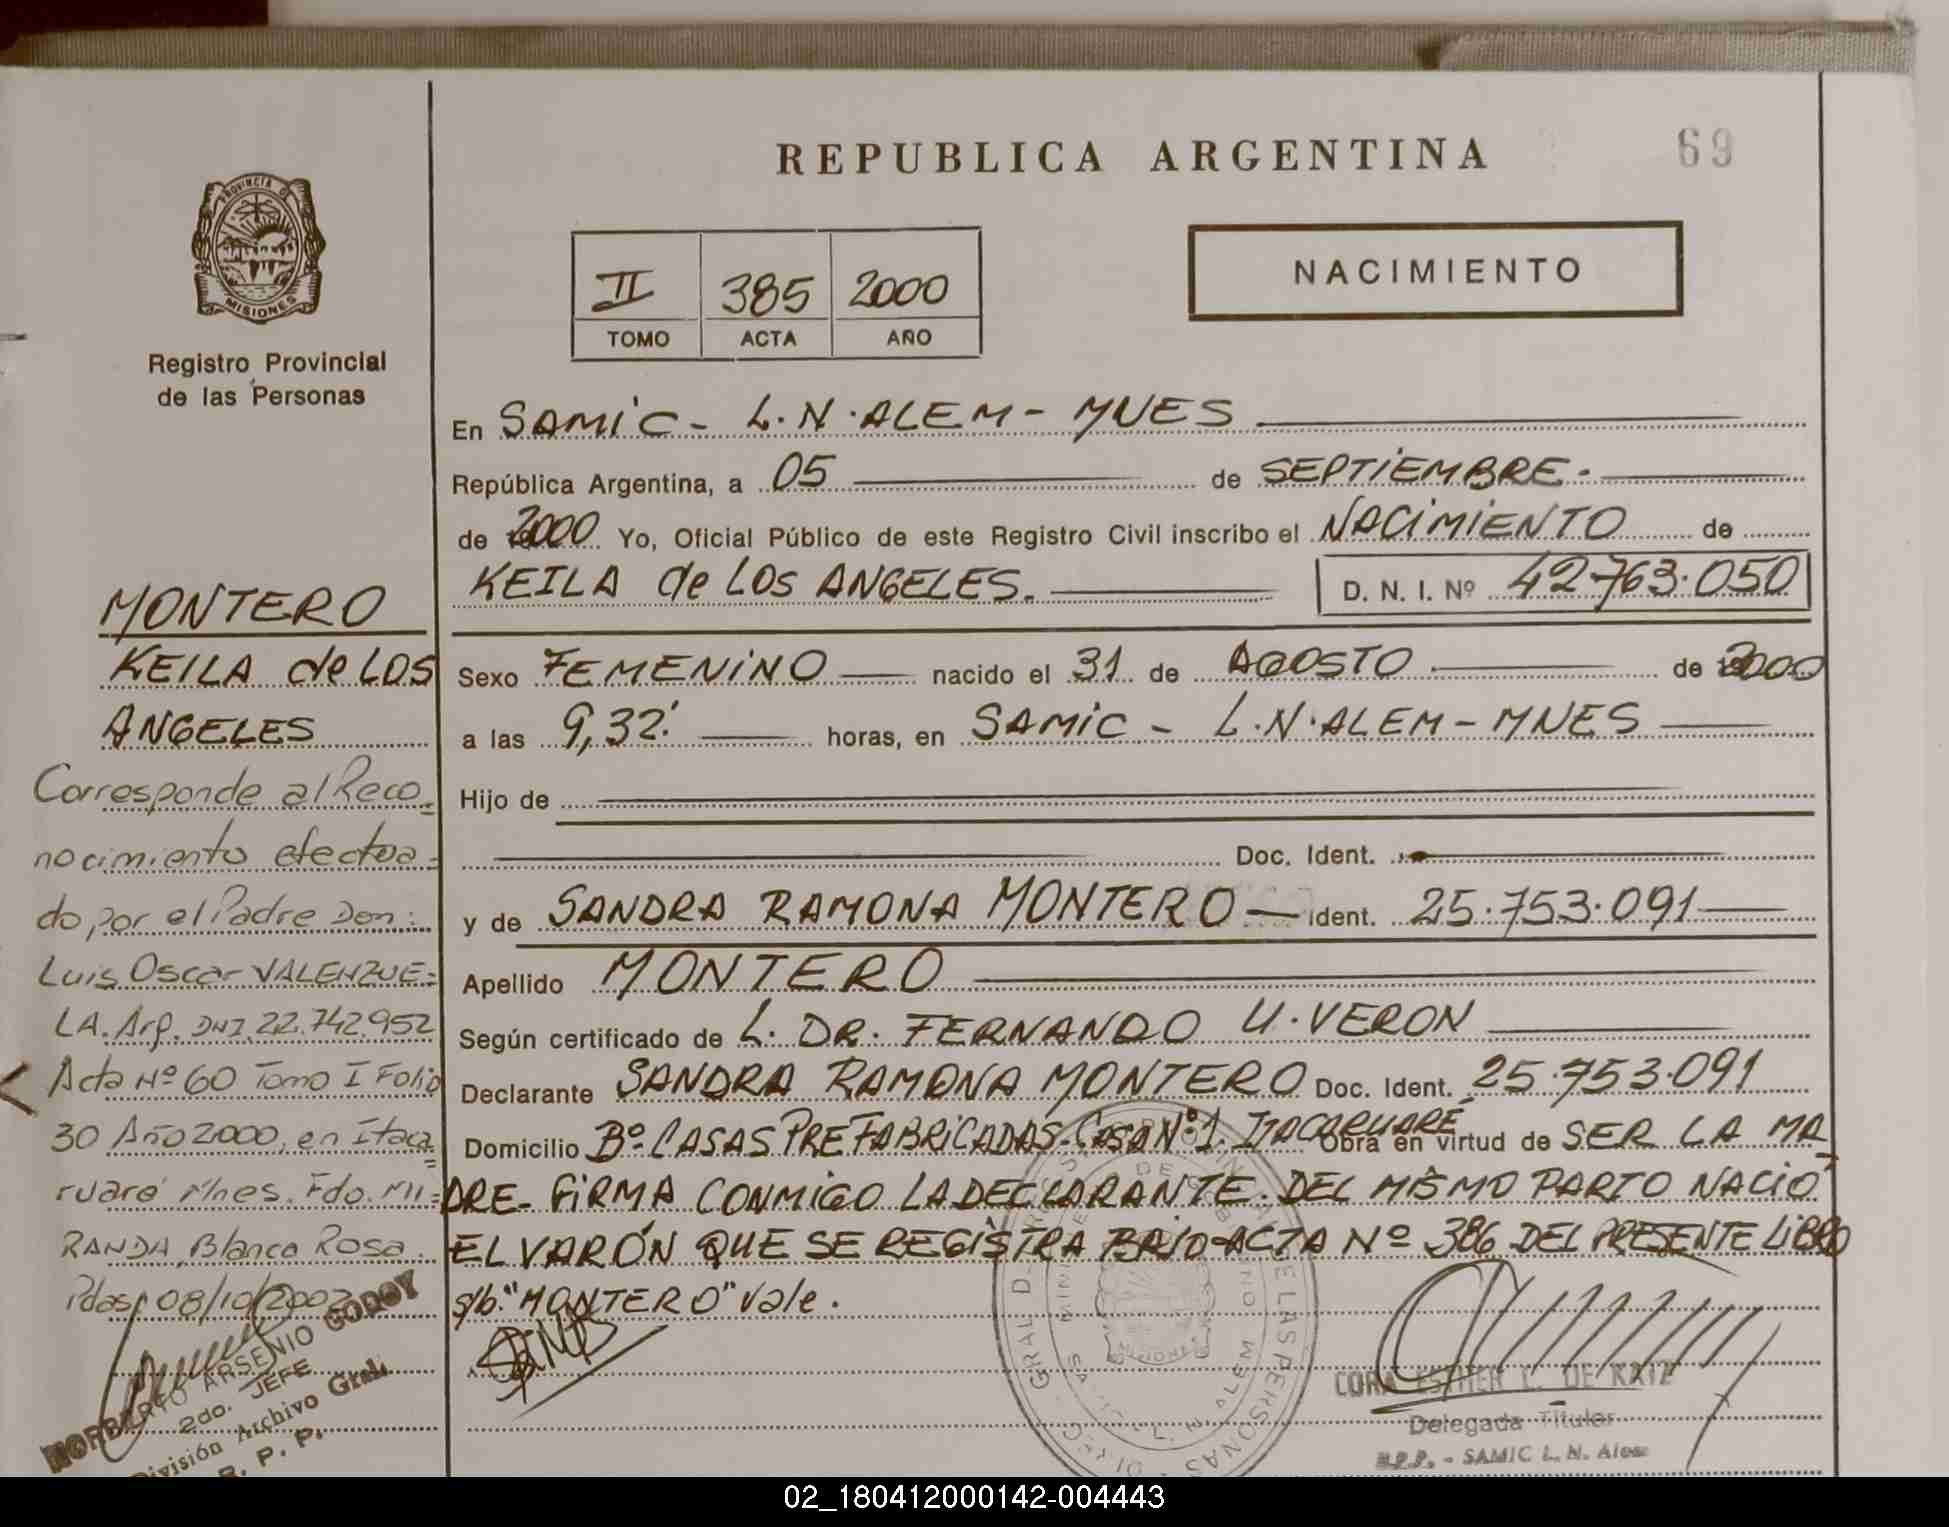 REPUBLICA ARGENTINA
69
PROVINCIA DE
MISIONES
Registro Provincial
de las Personas
II 385 2000
TOMO ACTA AÑO
NACIMIENTO
En SAMIC - L.N.ALEM - MNES
República Argentina, a 05 de SEPTIEMBRE.
de 2000 Yo, Oficial Público de este Registro Civil inscribo el NACIMIENTO de
KEILA de LOS ANGELES. D. N. I. Nº 42.763.050
Sexo FEMENINO nacido el 31 de AGOSTO de 2000
a las 9,32' horas, en SAMIC - L.N.ALEM - MNES
Hijo de
Doc. Ident.
y de SANDRA RAMONA MONTERO Ident. 25.753.091
Apellido MONTERO
Según certificado de L. DR. FERNANDO U. VERON
Declarante SANDRA RAMONA MONTERO Doc. Ident. 25.753.091
Domicilio Bº CASAS PREFABRICADAS. CASA Nº 1. ITACARUARÉ Obra en virtud de SER LA MA
DRE. FIRMA CONMIGO LA DECLARANTE. DEL MISMO PARTO NACIÓ
EL VARÓN QUE SE REGISTRA BAJO ACTA Nº 386 DEL PRESENTE LIBRO
s/b. "MONTERO" Vale.
MONTERO
KEILA de LOS
ANGELES
Corresponde al Reco=
nocimiento efectua=
do por el Padre Don:
Luis Oscar VALENZUE=
LA. Arg. DNI. 22.742.952
Acta Nº 60 Tomo I Folio
30 Año 2000, en Itaca=
ruaré Mnes. Fdo. MI=
RANDA, Blanca Rosa.
Pdas, 08/10/2002
NORBERTO ARSENIO GODOY
2do. JEFE
División Archivo Gral.
R. P. P.
CORA ESTHER L. DE KATZ
Delegada Titular
R.P.P. - SAMIC L. N. Alem
02_180412000142-004443